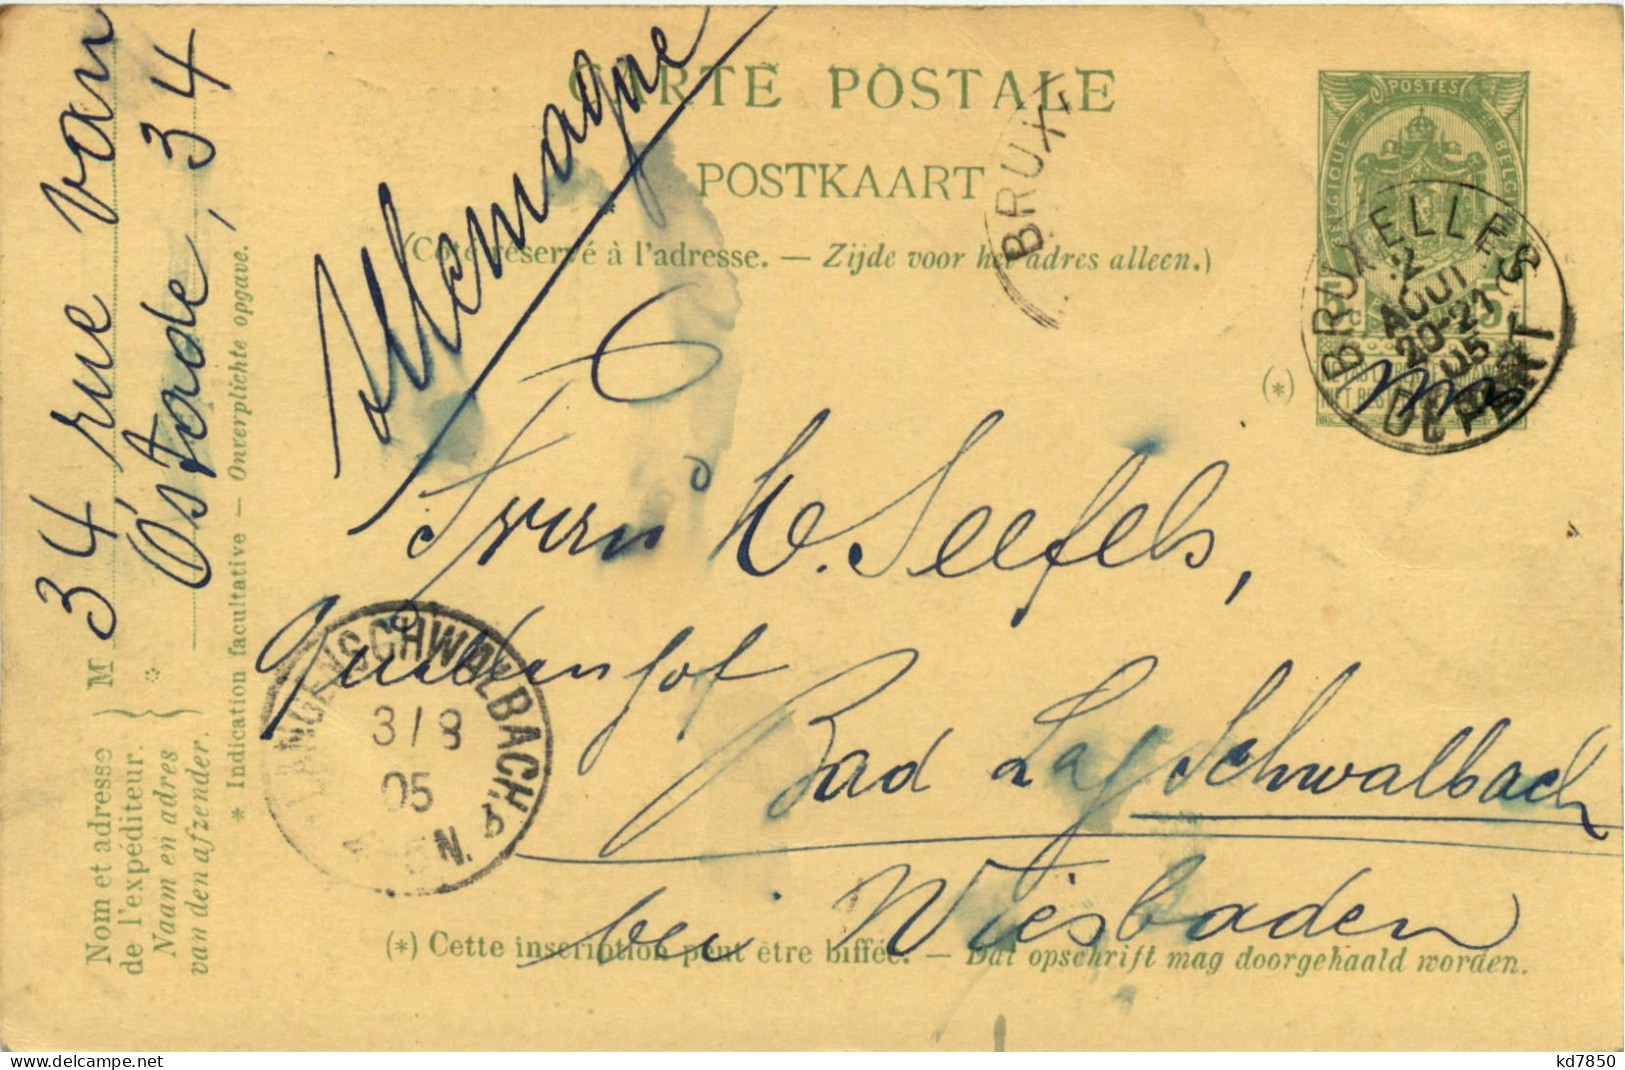 CARTE POSTALE
POSTKAART
(Côté réservé à l'adresse. — Zijde voor het adres alleen.)
Allemagne
BRUXE
POSTES
BELGIQUE
BELGI
BRUXELLES
2
AOUT
20-21
05
DEPART
(*)
Frau W. Seefels,
Lindenhof
Bad Lg Schwalbach
bei Wiesbaden
LANGENSCHWALBACH
3/8
05
(*) Cette inscription peut être biffée. — Dat opschrift mag doorgehaald worden.
Nom et adresse
de l'expéditeur.
Naam en adres
van den afzender.
M
34 rue van
Ostade, 34
* Indication facultative — Onverplichte opgave.
www.delcampe.net
kd7850